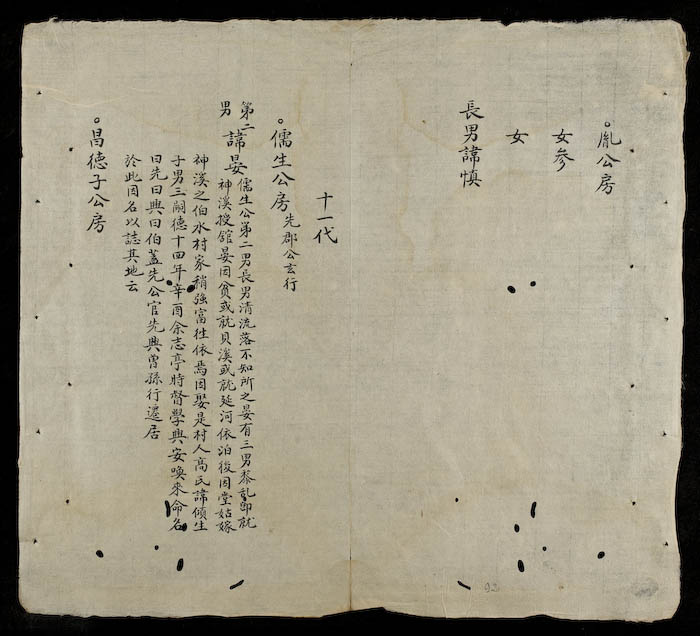 。胤公房
女參
女
長男諱慎
十一代
。儒生公房先郡公玄行
第二男諱晏儒生公第二男長男清流落不知所之晏有三男黎乱即就
神溪授舘晏因貧或就貝溪或就延河依泊後因堂姑嫁
神溪之伯水村家稍強富徃依焉因娶是村人高氏諱傾生
子男三嗣德十四年辛酉余志亭時督學興安喚來命名
曰先曰興曰伯蓋先公官先興曾孫行還居
於此因名以誌其地云
。昌德子公房
92